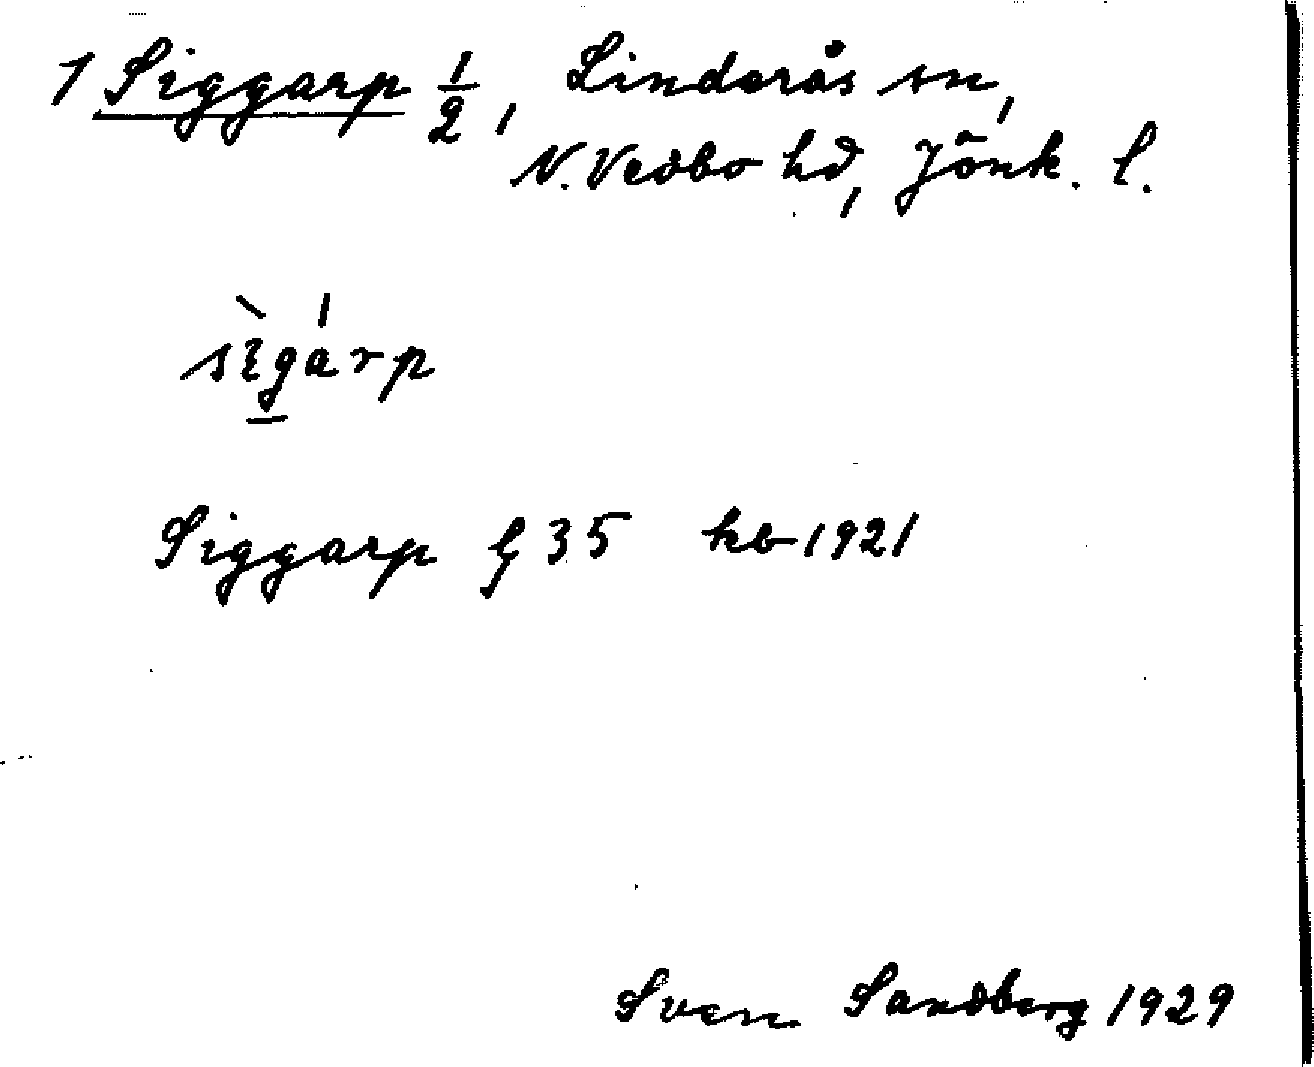 1 Siggarp 1/2, Linderås sn,
N. Vedbo hd, Jönk. l.
sìgárp
Siggarp § 35 kb 1921
Sven Sandberg 1929